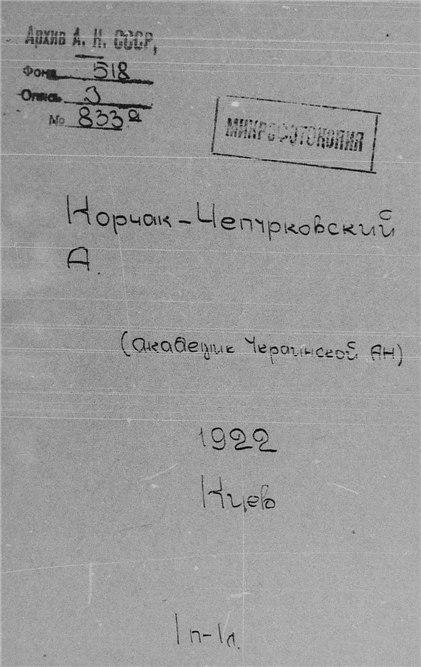 Архив А. Н. СССР,
Фонд 518
Опись 3
№ 833а
МИКРОФОТОКОПИЯ
Корчак-Чепурковский
А.
(академик Украинской АН)
1922
Киев
1п-1л.